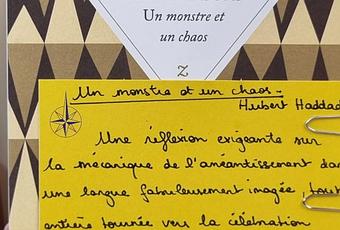 Un monstre et
un chaos
Z
Un monstre et un chaos.
Hubert Haddad
Une réflexion exigeante sur
la mécanique de l'anéantissement dan
une langue fabuleusement imagée, tout
entière tournée vers la célébration